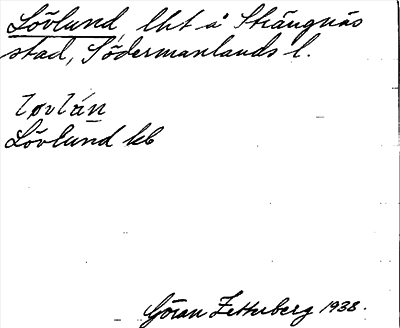 Lövlund, lht å Strängnäs
stad, Södermanlands l.
løvlán
Lövlund kb
Göran Zetterberg 1938.